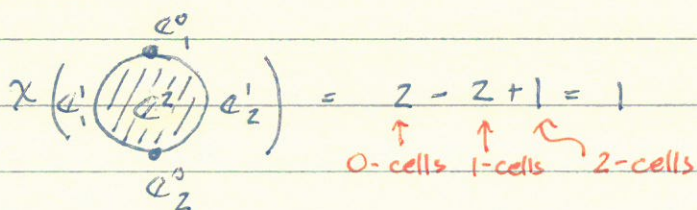 e⁰₁
χ ( e¹₁ e² e¹₂ ) = 2 - 2 + 1 = 1
0-cells 1-cells 2-cells
e⁰₂